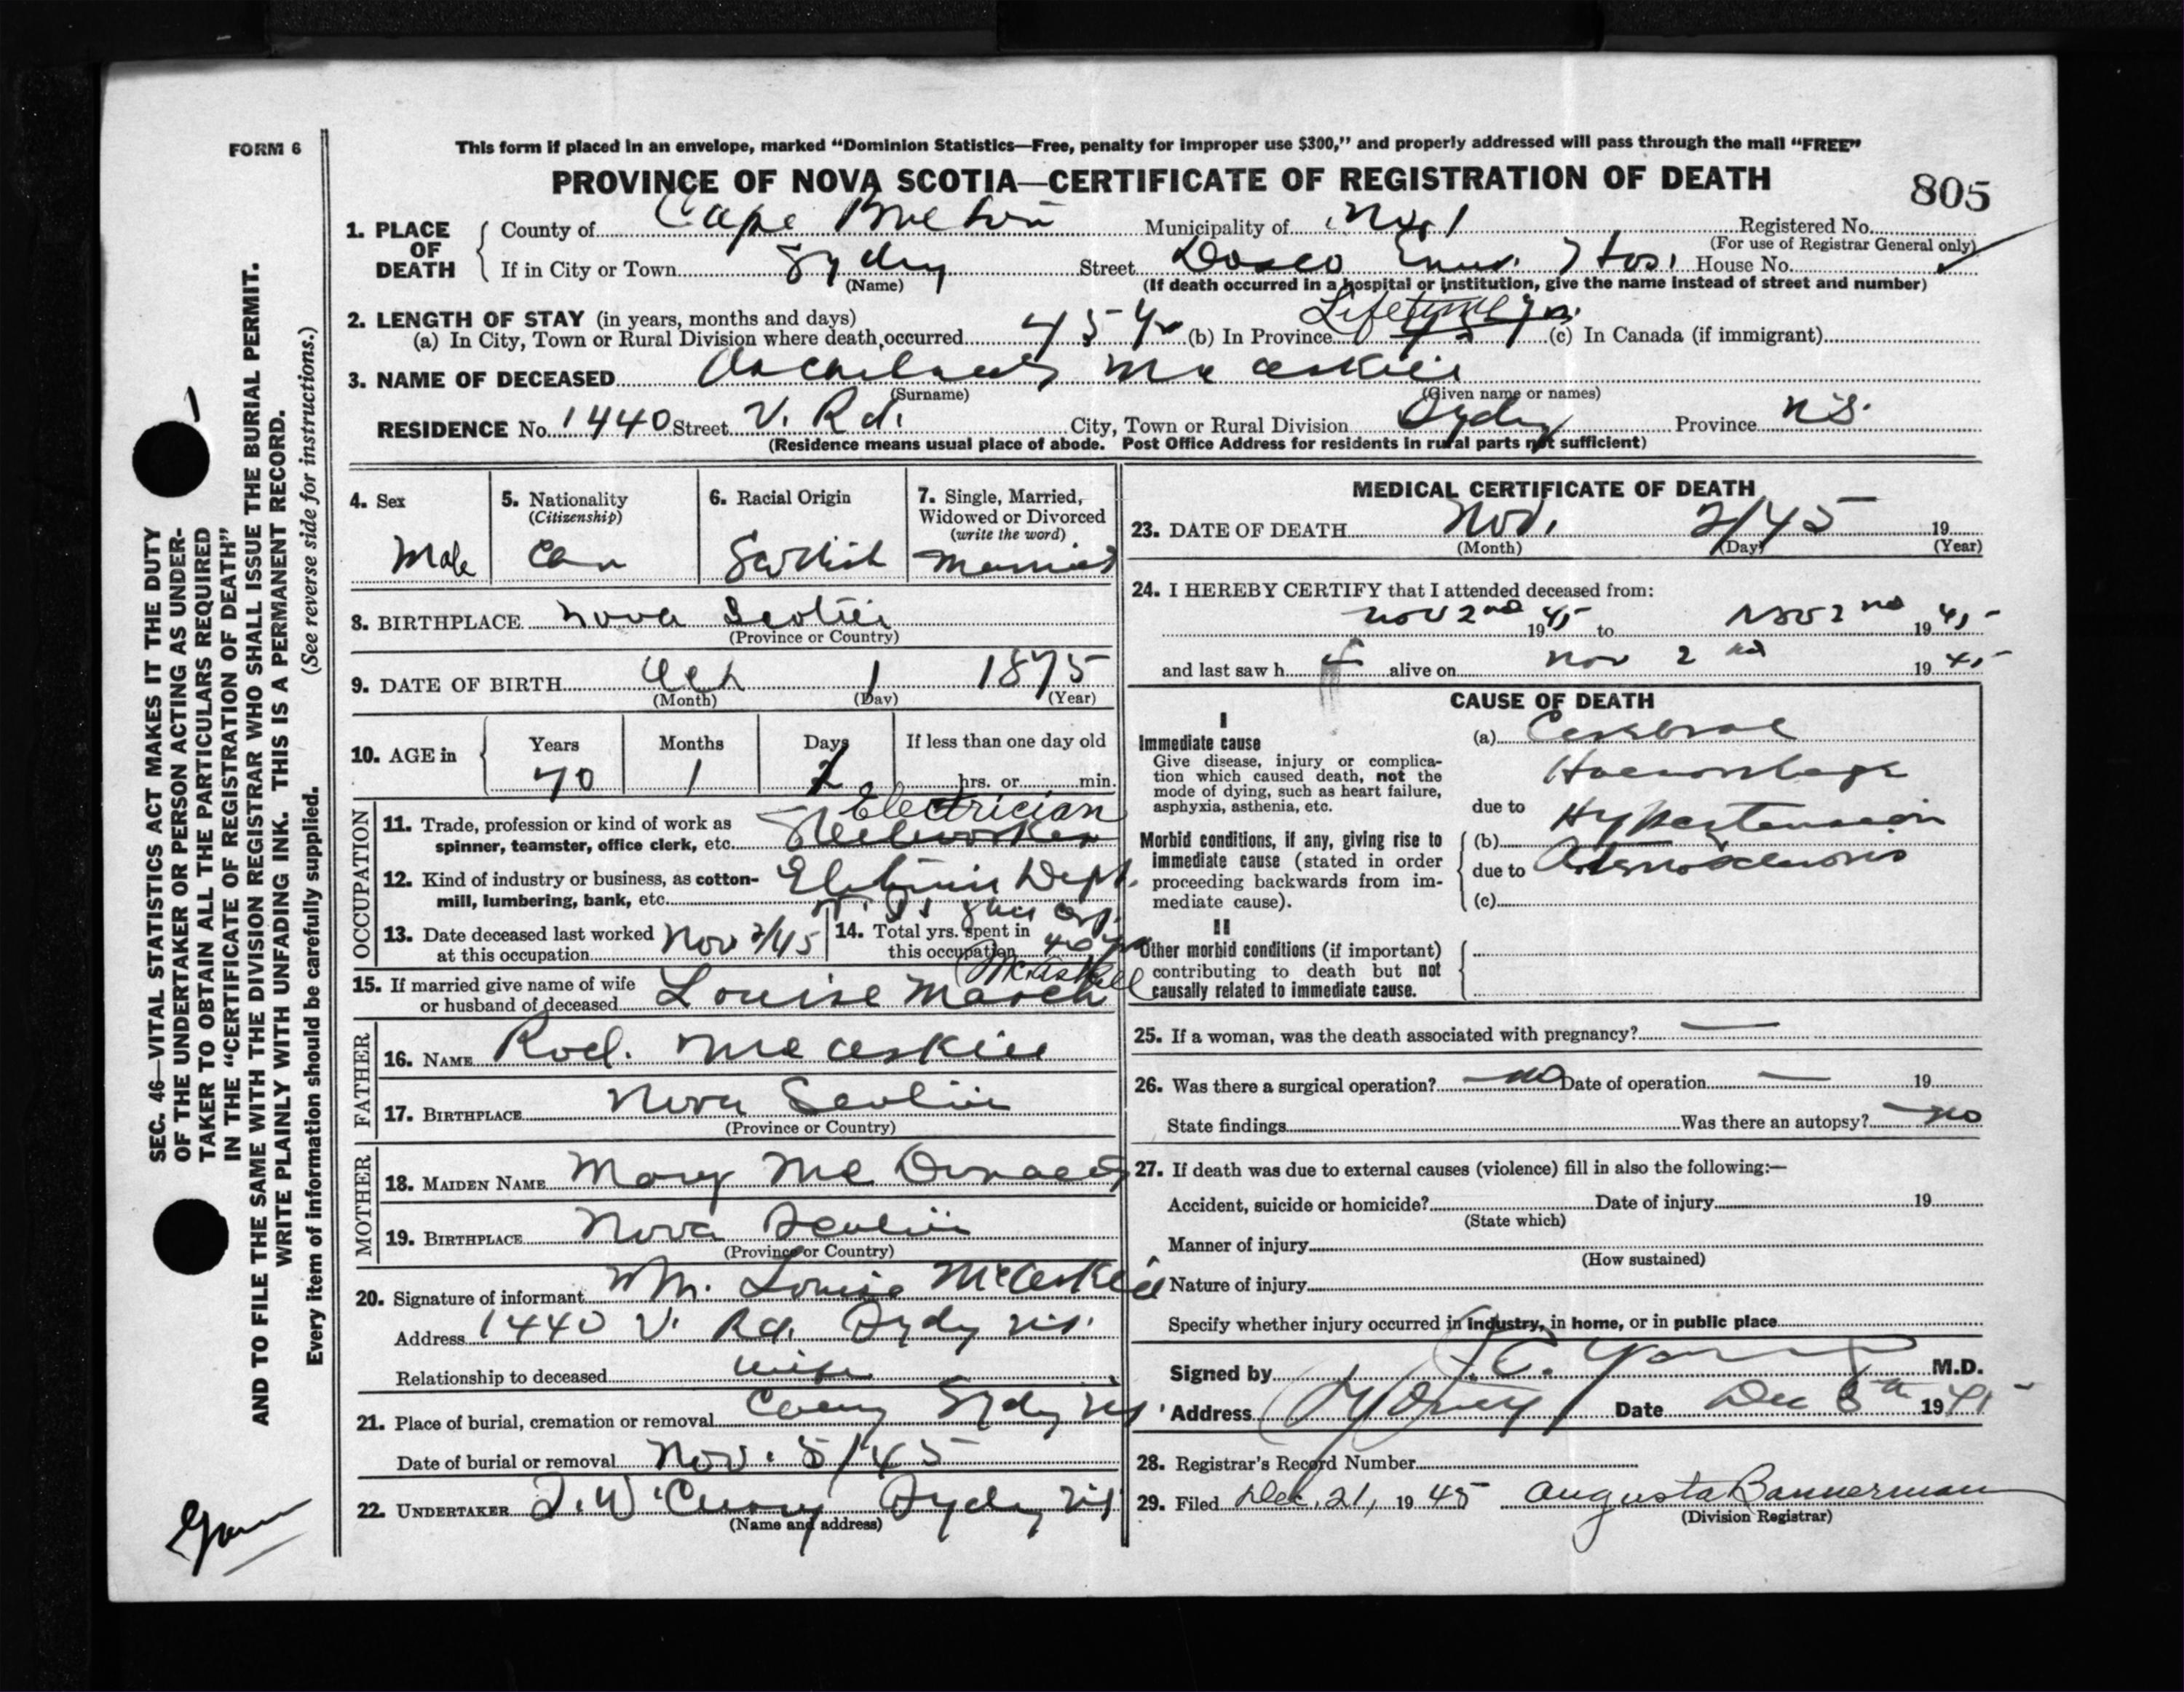 FORM 6
This form if placed in an envelope, marked "Dominion Statistics—Free, penalty for improper use $300," and properly addressed will pass through the mail "FREE"
PROVINCE OF NOVA SCOTIA—CERTIFICATE OF REGISTRATION OF DEATH
805
1. PLACE OF DEATH
County of Cape Breton Municipality of No. 1 Registered No.
(For use of Registrar General only)
If in City or Town Sydney Street Dosco Hos. House No.
(Name) (If death occurred in a hospital or institution, give the name instead of street and number)
2. LENGTH OF STAY (in years, months and days) Lifetime
(a) In City, Town or Rural Division where death occurred 45 Yr (b) In Province 45 yrs (c) In Canada (if immigrant)
3. NAME OF DECEASED Archibald McAskill
(Surname) (Given name or names)
RESIDENCE No. 1440 Street V. Rd. City, Town or Rural Division Sydney Province N.S.
(Residence means usual place of abode. Post Office Address for residents in rural parts not sufficient)
4. Sex
Male
5. Nationality
(Citizenship)
Can
6. Racial Origin
Scottish
7. Single, Married,
Widowed or Divorced
(write the word)
Married
8. BIRTHPLACE Nova Scotia
(Province or Country)
9. DATE OF BIRTH Oct 1 1875
(Month) (Day) (Year)
10. AGE in
Years Months Days If less than one day old
70 1 2 hrs. or min.
OCCUPATION
Electrician
11. Trade, profession or kind of work as
spinner, teamster, office clerk, etc. Steelworker
12. Kind of industry or business, as cotton-
mill, lumbering, bank, etc. Electric Dept.
13. Date deceased last worked
at this occupation Nov 2/45
14. Total yrs. spent in
this occupation 40 yrs
McAskill
15. If married give name of wife
or husband of deceased Louise March
FATHER
16. NAME Rod. McAskill
17. BIRTHPLACE Nova Scotia
(Province or Country)
MOTHER
18. MAIDEN NAME Mary McDonald
19. BIRTHPLACE Nova Scotia
(Province or Country)
20. Signature of informant Mrs. Louise McAskill
Address 1440 V. Rd. Sydney N.S.
Relationship to deceased wife
21. Place of burial, cremation or removal Sydney N.S.
Date of burial or removal Nov. 5/45
22. UNDERTAKER T. W. Curry Sydney N.S.
(Name and address)
MEDICAL CERTIFICATE OF DEATH
23. DATE OF DEATH Nov. 2/45 19
(Month) (Day) (Year)
24. I HEREBY CERTIFY that I attended deceased from:
Nov 2nd 1945 to Nov 2nd 1945
and last saw h alive on Nov 2nd 1945
CAUSE OF DEATH
I
Immediate cause
Give disease, injury or complica-
tion which caused death, not the
mode of dying, such as heart failure,
asphyxia, asthenia, etc.
(a) Cerebral
Haemorrhage
due to
Morbid conditions, if any, giving rise to
immediate cause (stated in order
proceeding backwards from im-
mediate cause).
(b) Hypertension
due to Arteriosclerosis
(c)
II
Other morbid conditions (if important)
contributing to death but not
causally related to immediate cause.
25. If a woman, was the death associated with pregnancy? —
26. Was there a surgical operation? no Date of operation — 19
State findings Was there an autopsy? no
27. If death was due to external causes (violence) fill in also the following:—
Accident, suicide or homicide? Date of injury 19
(State which)
Manner of injury
(How sustained)
Nature of injury
Specify whether injury occurred in industry, in home, or in public place
Signed by M.D.
Address Sydney Date Dec 8th 1945
28. Registrar's Record Number
29. Filed Dec. 21, 1945 Augusta Bannerman
(Division Registrar)
SEC. 46—VITAL STATISTICS ACT MAKES IT THE DUTY
OF THE UNDERTAKER OR PERSON ACTING AS UNDER-
TAKER TO OBTAIN ALL THE PARTICULARS REQUIRED
IN THE "CERTIFICATE OF REGISTRATION OF DEATH"
AND TO FILE THE SAME WITH THE DIVISION REGISTRAR WHO SHALL ISSUE THE BURIAL PERMIT.
WRITE PLAINLY WITH UNFADING INK. THIS IS A PERMANENT RECORD.
Every item of information should be carefully supplied. (See reverse side for instructions.)